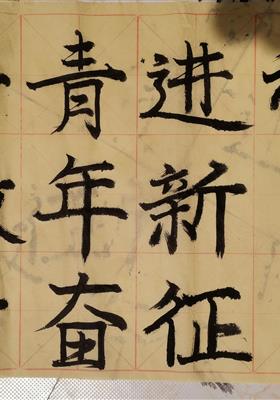 青年奋
进新征